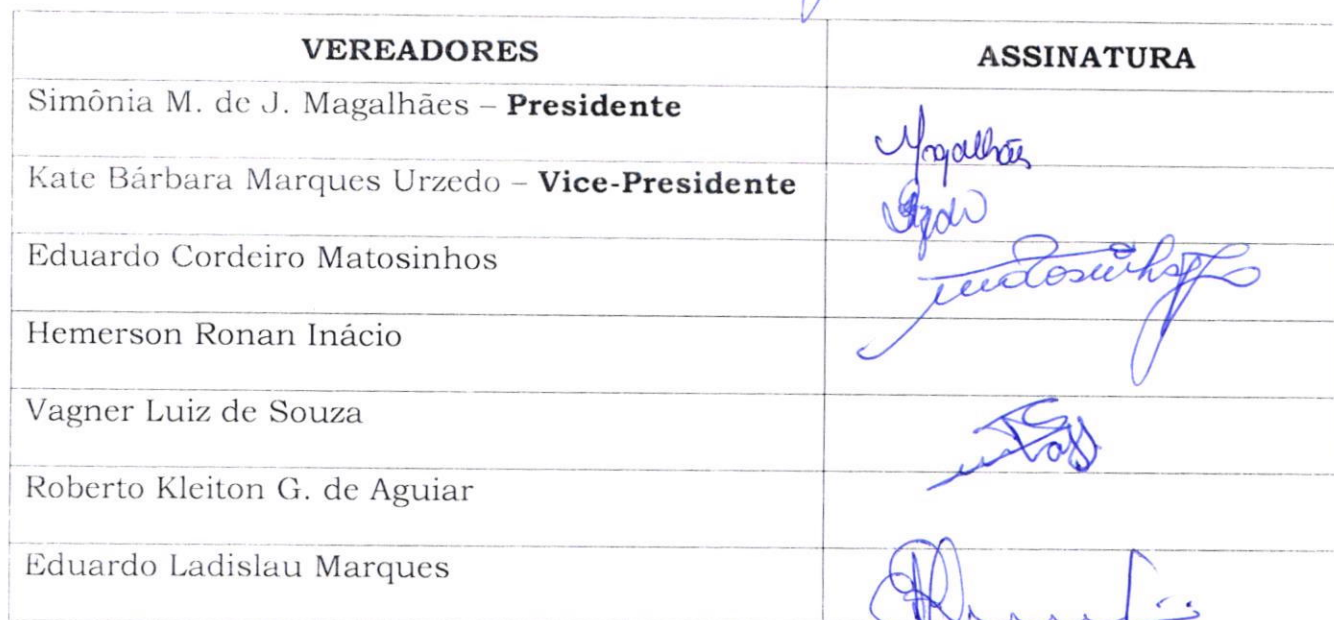 VEREADORES ASSINATURA
Simônia M. de J. Magalhães – Presidente Magalhães
Kate Bárbara Marques Urzedo – Vice-Presidente
Eduardo Cordeiro Matosinhos Matosinhos
Hemerson Ronan Inácio
Vagner Luiz de Souza
Roberto Kleiton G. de Aguiar
Eduardo Ladislau Marques